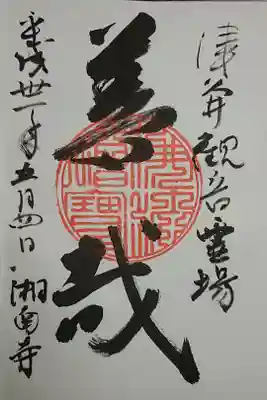 津井観音霊場
善哉
平成卅一年五月四日
湘南寺